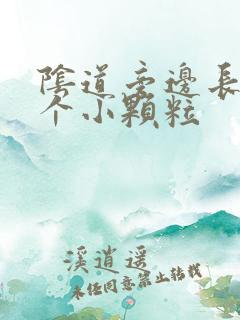 陰道旁邊長
个小顆粒
溪逍遥
未经同意禁止转载